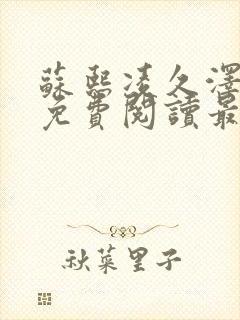 蘇熙凌久澤
免費閱讀最
秋菜里子